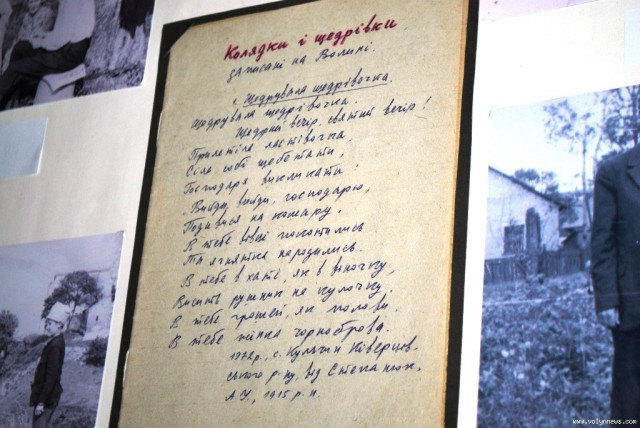 Колядки і щедрівки
записані на Волині.
1. Щедрувала щедрівочка.
Щедрувала щедрівочка.
Щедрий вечір, святий вечір!
Прилетіла ластівочка,
Сіла собі щебетати,
Господаря викликати:
Вийди, вийди, господарю,
Подивися на кошару,
В тебе вовці покотились
Та ягнятка народились.
В тебе в хаті, як в віночку,
Висить рушник на кулочку.
В тебе грошей, як полови.
В тебе жінка чорноброва.
1972р., с. Кульчин Ківерців-
ського р-ну, від Степанюк,
А.У., 1915 р.н.
www.volynnews.com